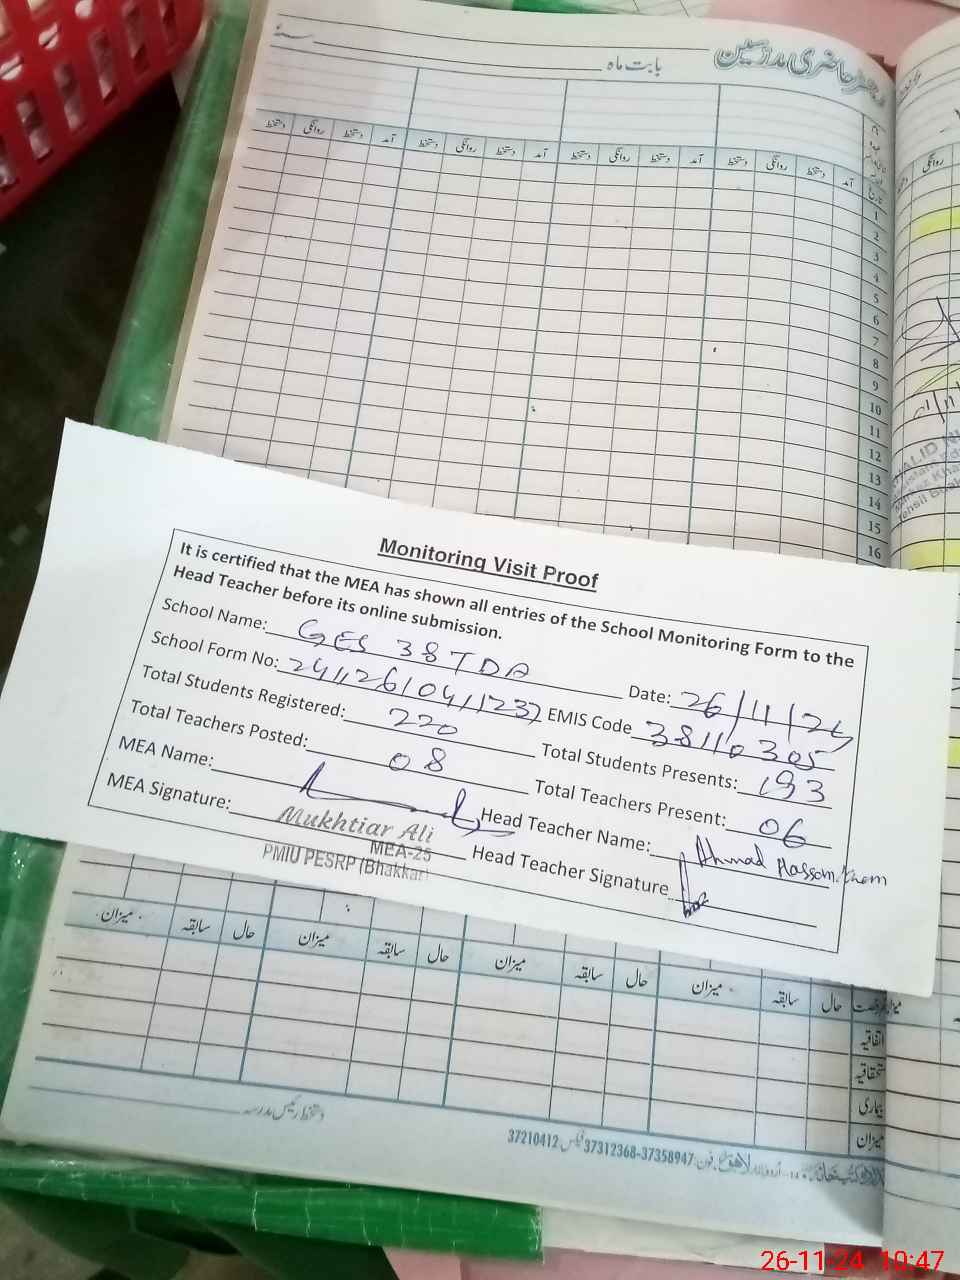 رجسٹر حاضری مدرسین
بابت ماہ
سنہ
آمد دستخط روانگی دستخط آمد دستخط روانگی دستخط آمد دستخط روانگی دستخط آمد دستخط روانگی دستخط
تاریخ
1
2
3
4
5
6
7
8
9
10
11
12
13
14
15
16
روانگی
Monitoring Visit Proof
It is certified that the MEA has shown all entries of the School Monitoring Form to the
Head Teacher before its online submission.
School Name: GES 38 TDA Date: 26/11/24
School Form No: EMIS Code 38110305
Total Students Registered: 220 Total Students Presents: 193
Total Teachers Posted: 08 Total Teachers Present: 06
MEA Name: Head Teacher Name: Ahmad Hassan
MEA Signature: Head Teacher Signature
Mukhtiar Ali
MEA-25
PMIU PESRP (Bhakkar)
حال سابقہ میزان حال سابقہ میزان حال سابقہ میزان حال سابقہ میزان
اتفاقیہ
استحقاقیہ
بیماری
میزان
دستخط رئیس مدرسہ
اردو بازار لاہور فون: 37358947-37312368 فیکس: 37210412
26-11-24 10:47